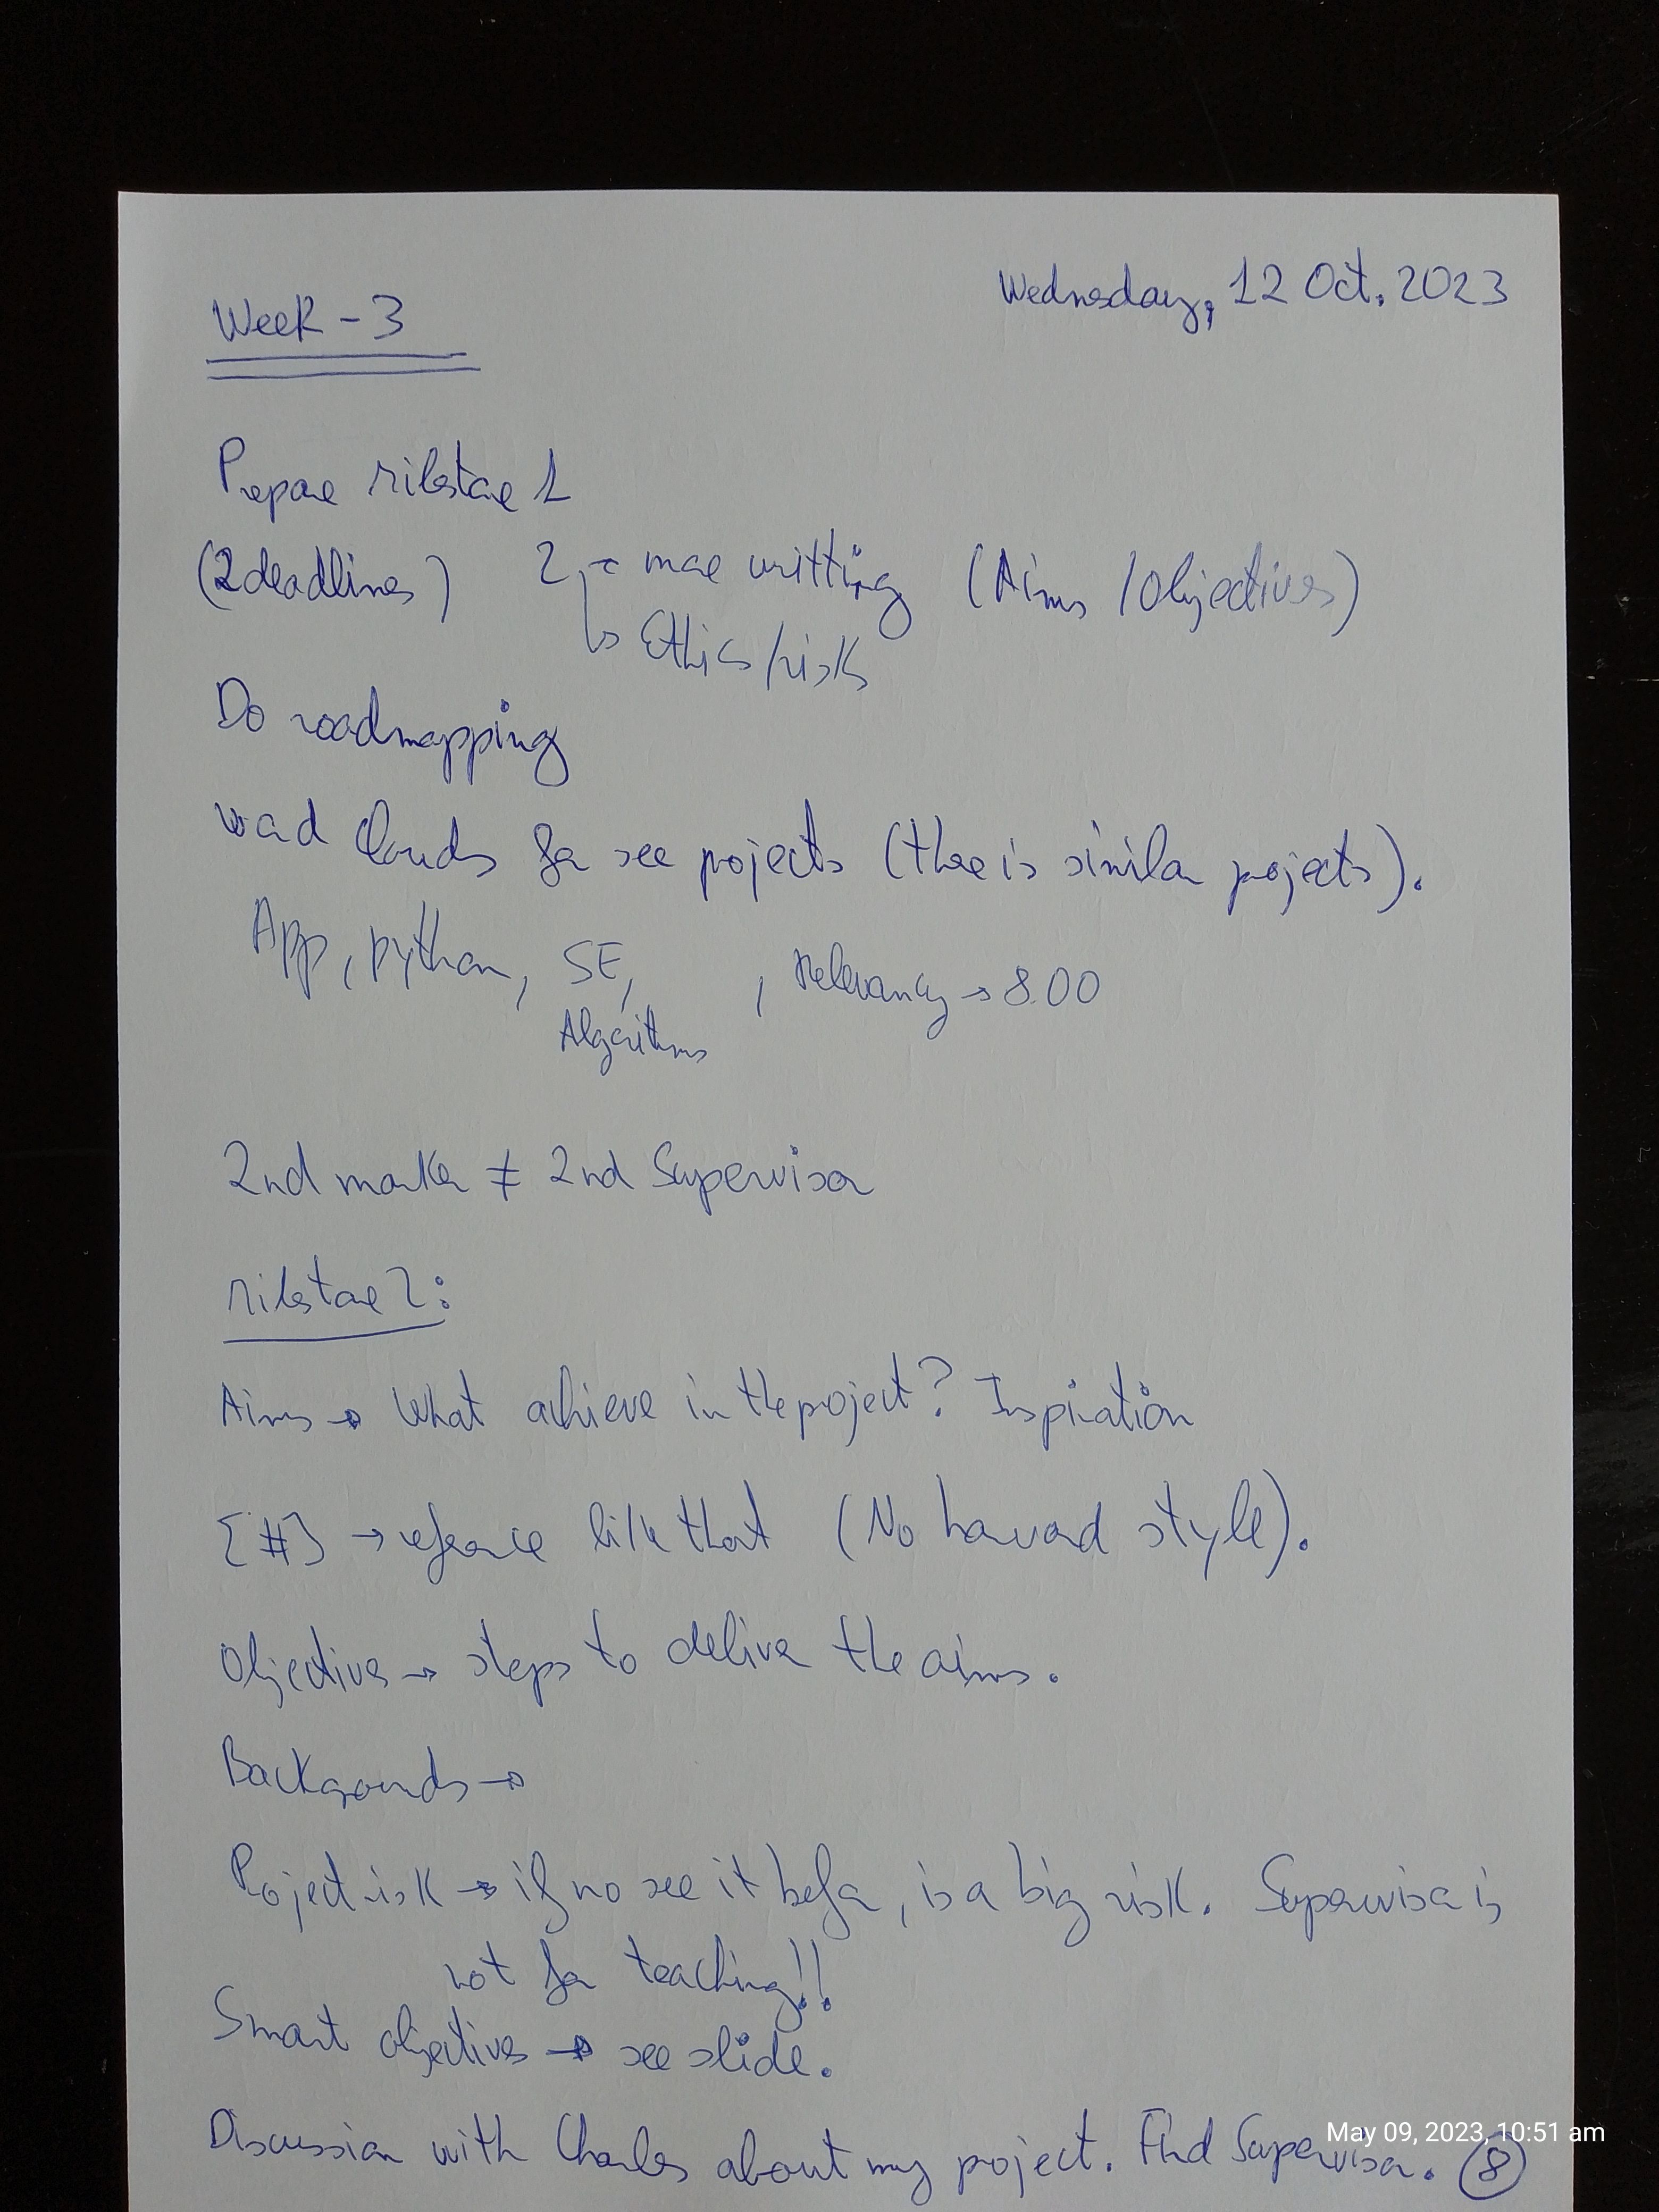 Week - 3
Wednesday, 12 Oct. 2023
Prepare Milestone 1
(2 deadlines) 2 → more writting (Aims / Objectives)
↳ Ethics/risk
Do roadmapping
word clouds for see projects (there is similar projects).
App, python, SE, , Relevancy → 8.00
Algorithms
2nd marker ≠ 2nd Supervisor
Milestone 2:
Aims → What achieve in the project? Inspiration
[#] → reference like that (No harvard style).
Objectives → steps to deliver the aims.
Backgrounds →
Project risk → if no see it before, is a big risk. Supervisor is
not for teaching!!
Smart objectives → see slide.
Discussion with Charles about my project. Find Supervisor. 8
May 09, 2023, 10:51 am